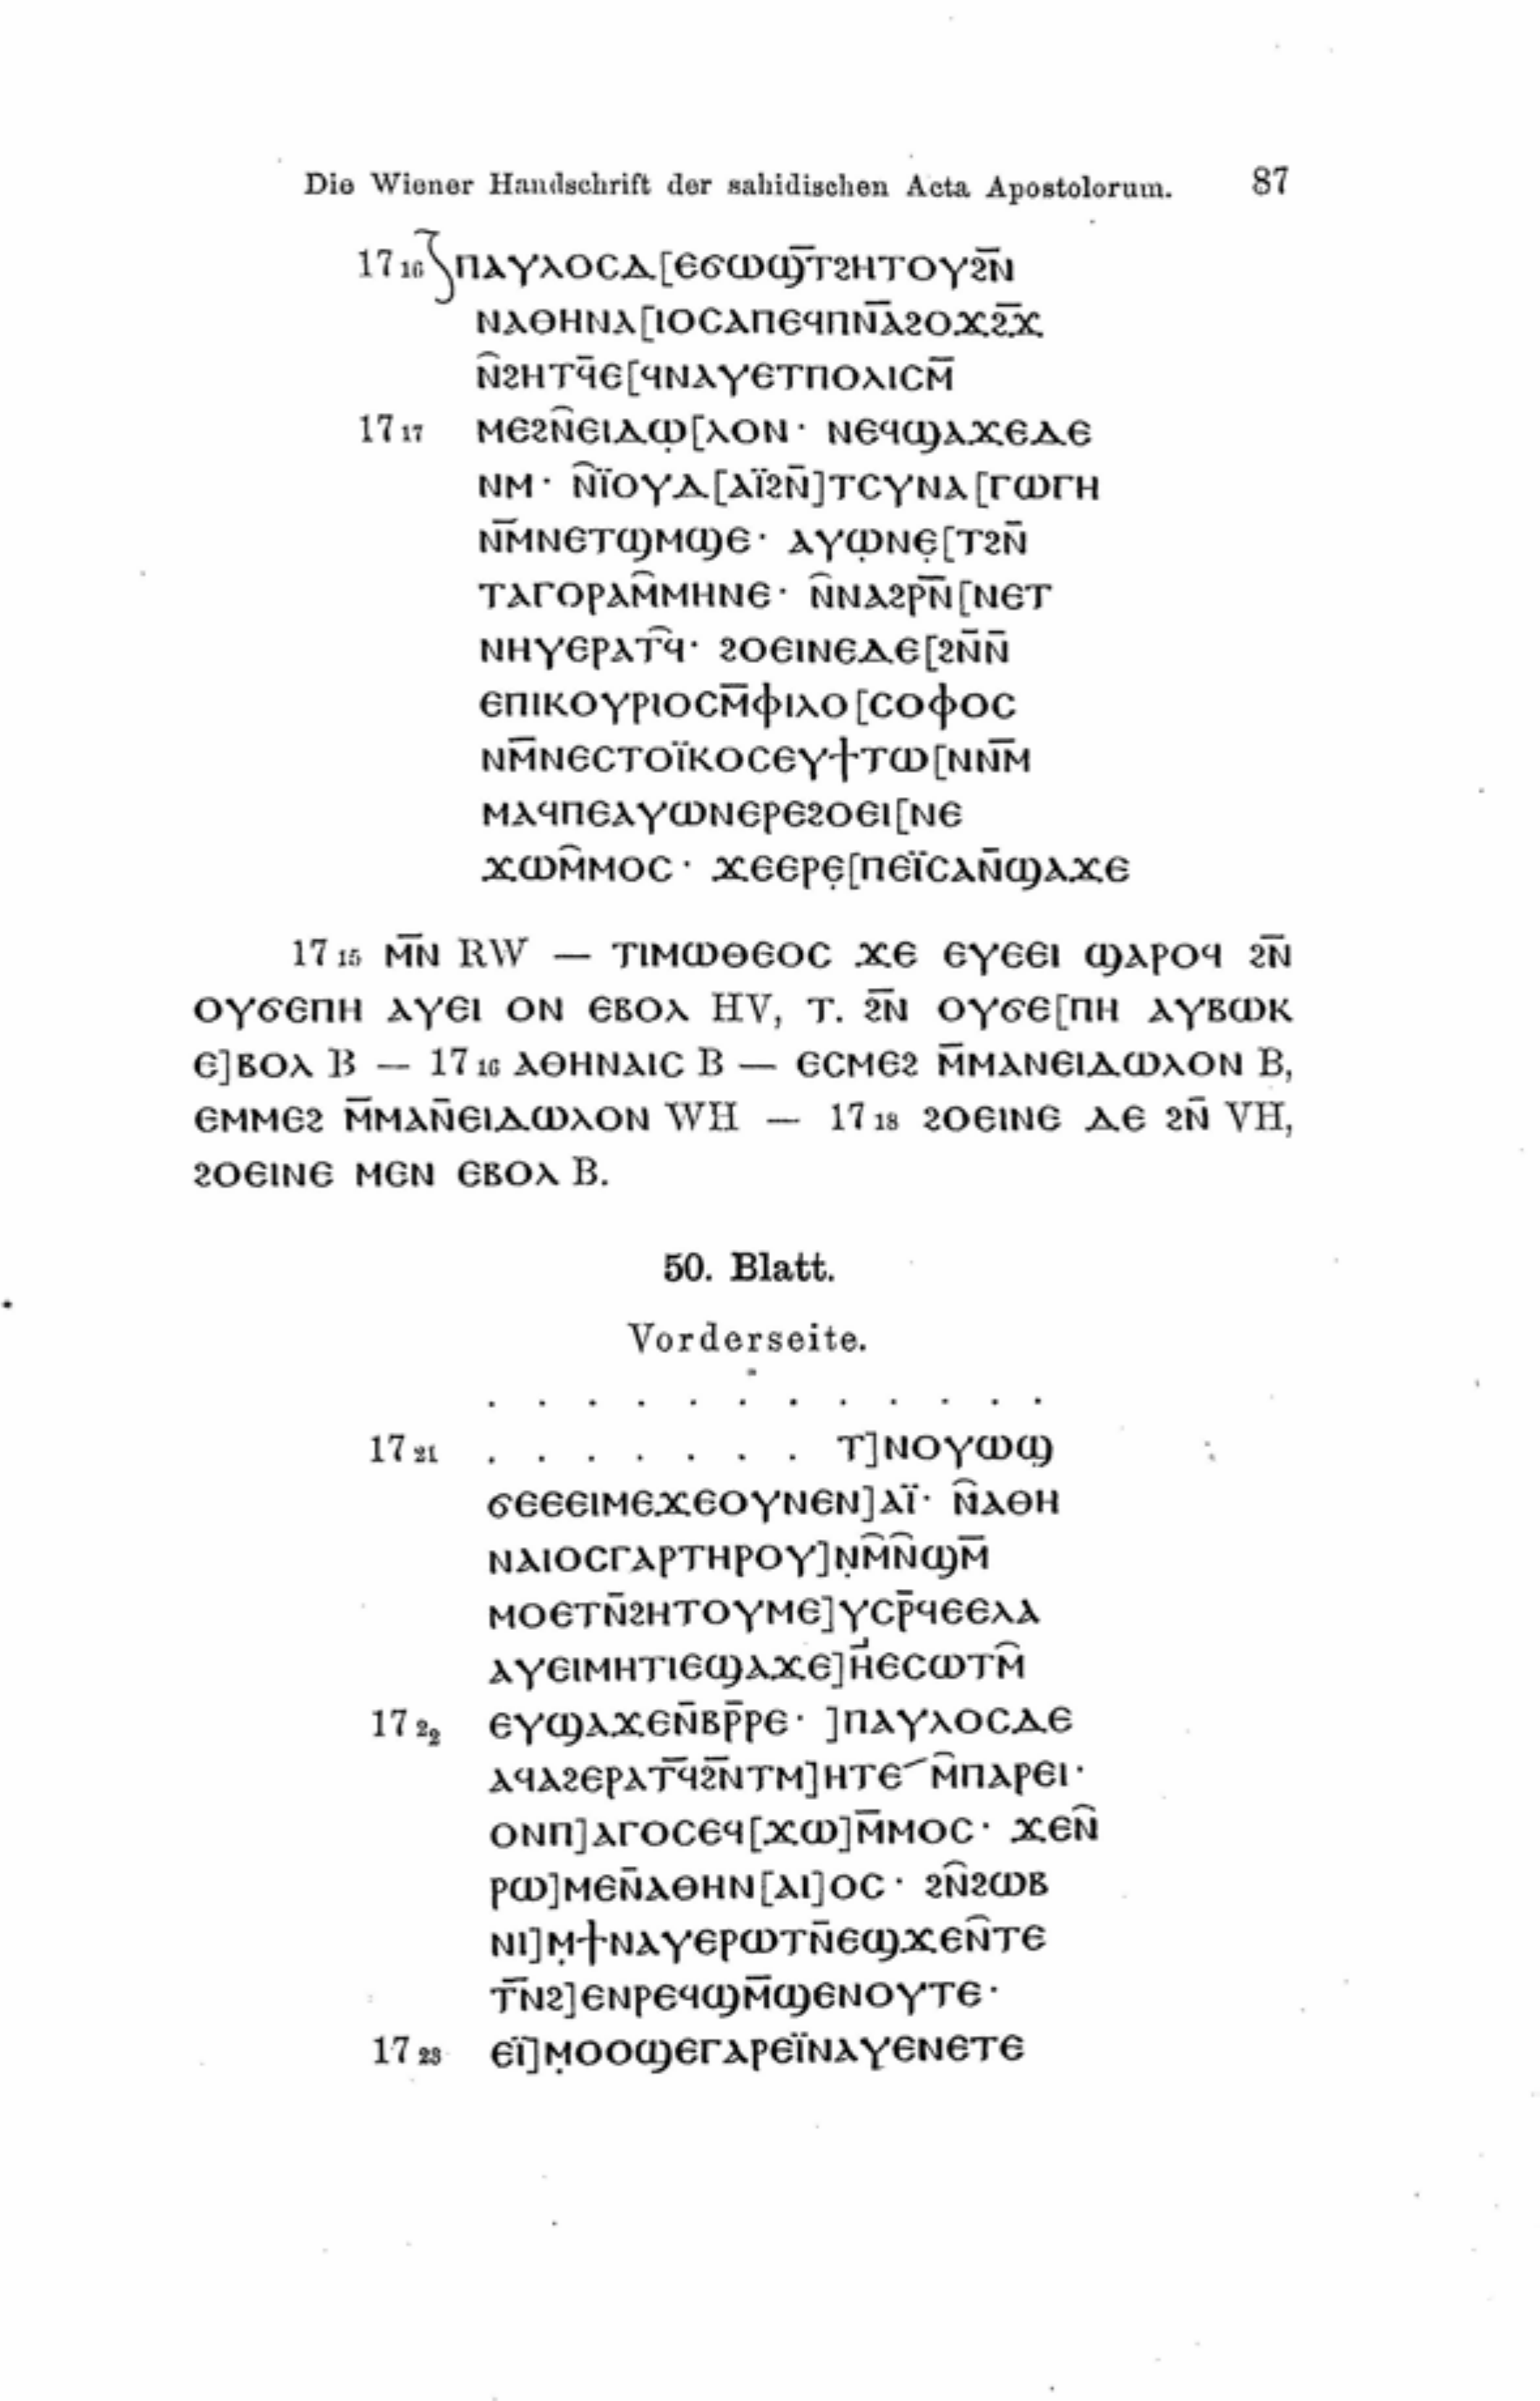 Die Wiener Handschrift der sahidischen Acta Apostolorum. 87
17 16 ⲡⲁⲩⲗⲟⲥⲇ[ⲉϭⲱϣ̅ⲧϩⲏⲧⲟⲩϩⲛ̅
ⲛⲁⲑⲏⲛⲁ[ⲓⲟⲥⲁⲡⲉϥⲡⲛ̅ⲁ̅ϩⲟϫϩ̅ϫ
ⲛ̂ϩⲏⲧϥ̄ⲉ[ϥⲛⲁⲩⲉⲧⲡⲟⲗⲓⲥⲙ̅
17 17 ⲙⲉϩⲛ̂ⲉⲓⲇⲱ̣[ⲗⲟⲛ· ⲛⲉϥϣⲁϫⲉⲇⲉ
ⲛⲙ· ⲛ̂ⲓ̈ⲟⲩⲇ[ⲁⲓ̈ϩⲛ̄]ⲧⲥⲩⲛⲁ[ⲅⲱⲅⲏ
ⲛⲙ̅ⲛⲉⲧϣⲙϣⲉ· ⲁⲩⲱ̣ⲛⲉ̣[ⲧϩⲛ̄
ⲧⲁⲅⲟⲣⲁⲙ̂ⲙⲏⲛⲉ· ⲛ̂ⲛⲁϩⲣⲛ̅[ⲛⲉⲧ
ⲛⲏⲩⲉⲣⲁⲧ̂ϥ· ϩⲟⲉⲓⲛⲉⲇⲉ[ϩⲛ̄ⲛ̄
ⲉⲡⲓⲕⲟⲩⲣⲓⲟⲥⲙ̅ⲫⲓⲗⲟ[ⲥⲟⲫⲟⲥ
ⲛⲙ̅ⲛⲉⲥⲧⲟⲓ̈ⲕⲟⲥⲉⲩϯⲧⲱ[ⲛⲛ̅ⲙ
ⲙⲁϥⲡⲉⲁⲩⲱⲛⲉⲣⲉϩⲟⲉⲓ[ⲛⲉ
ϫⲱⲙ̂ⲙⲟⲥ· ϫⲉⲉⲣⲉ̣[ⲡⲉⲓ̈ⲥⲁⲛ̄ϣⲁϫⲉ
17 15 ⲙ̅ⲛ RW — ⲧⲓⲙⲱⲑⲉⲟⲥ ϫⲉ ⲉⲩⲉⲉⲓ ϣⲁⲣⲟϥ ϩⲛ̅
ⲟⲩϭⲉⲡⲏ ⲁⲩⲉⲓ ⲟⲛ ⲉⲃⲟⲗ HV, ⲧ. ϩ̅ⲛ ⲟⲩϭⲉ[ⲡⲏ ⲁⲩⲃⲱⲕ
ⲉ]ⲃⲟⲗ B — 17 16 ⲁⲑⲏⲛⲁⲓⲥ B — ⲉⲥⲙⲉϩ ⲙ̅ⲙⲁⲛⲉⲓⲇⲱⲗⲟⲛ B,
ⲉⲙⲙⲉϩ ⲙ̅ⲙⲁⲛ̄ⲉⲓⲇⲱⲗⲟⲛ WH — 17 18 ϩⲟⲉⲓⲛⲉ ⲇⲉ ϩⲛ̄ VH,
ϩⲟⲉⲓⲛⲉ ⲙⲉⲛ ⲉⲃⲟⲗ B.
50. Blatt.
Vorderseite.
. . . . . . . . . . . .
17 21 . . . . . . . ⲧ]ⲛⲟⲩⲱϣ
ϭⲉⲉⲉⲓⲙⲉϫⲉⲟⲩⲛⲉⲛ]ⲁⲓ̈· ⲛ̂ⲁⲑⲏ
ⲛⲁⲓⲟⲥⲅⲁⲣⲧⲏⲣⲟⲩ]ⲛ̣ⲙ̂ⲛ̂ϣⲙ̅
ⲙⲟⲉⲧⲛ̄ϩⲏⲧⲟⲩⲙⲉ]ⲩⲥⲣ̅ϥⲉⲉⲗⲁ
ⲁⲩⲉⲓⲙⲏⲧⲓⲉϣⲁϫⲉ]ⲏ̓ⲉⲥⲱⲧⲙ̂
17 22 ⲉⲩϣⲁϫⲉⲛ̄ⲃⲣ̄ⲣⲉ· ]ⲡⲁⲩⲗⲟⲥⲇⲉ
ⲁϥⲁϩⲉⲣⲁⲧ̅ϥϩ̅ⲛⲧⲙ]ⲏⲧⲉ ⲙ̂ⲡⲁⲣⲉⲓ·
ⲟⲛⲡ]ⲁⲅⲟⲥⲉϥ[ϫⲱ]ⲙ̅ⲙⲟⲥ· ϫⲉⲛ̂
ⲣⲱ]ⲙⲉⲛ̄ⲁⲑⲏⲛ[ⲁⲓ]ⲟⲥ· ϩⲛ̂ϩⲱⲃ
ⲛⲓ]ⲙ̣ϯⲛⲁⲩⲉⲣⲱⲧⲛ̄ⲉϣϫⲉⲛ̂ⲧⲉ
ⲧ̅ⲛϩ]ⲉⲛⲣⲉϥϣⲙ̅ϣⲉⲛⲟⲩⲧⲉ·
17 23 ⲉⲓ̈]ⲙ̣ⲟⲟϣⲉⲅⲁⲣⲉⲓ̈ⲛⲁⲩⲉⲛⲉⲧⲉ